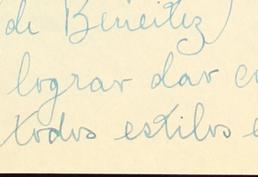 de Beneitez)
lograr dar co
todos estilos e